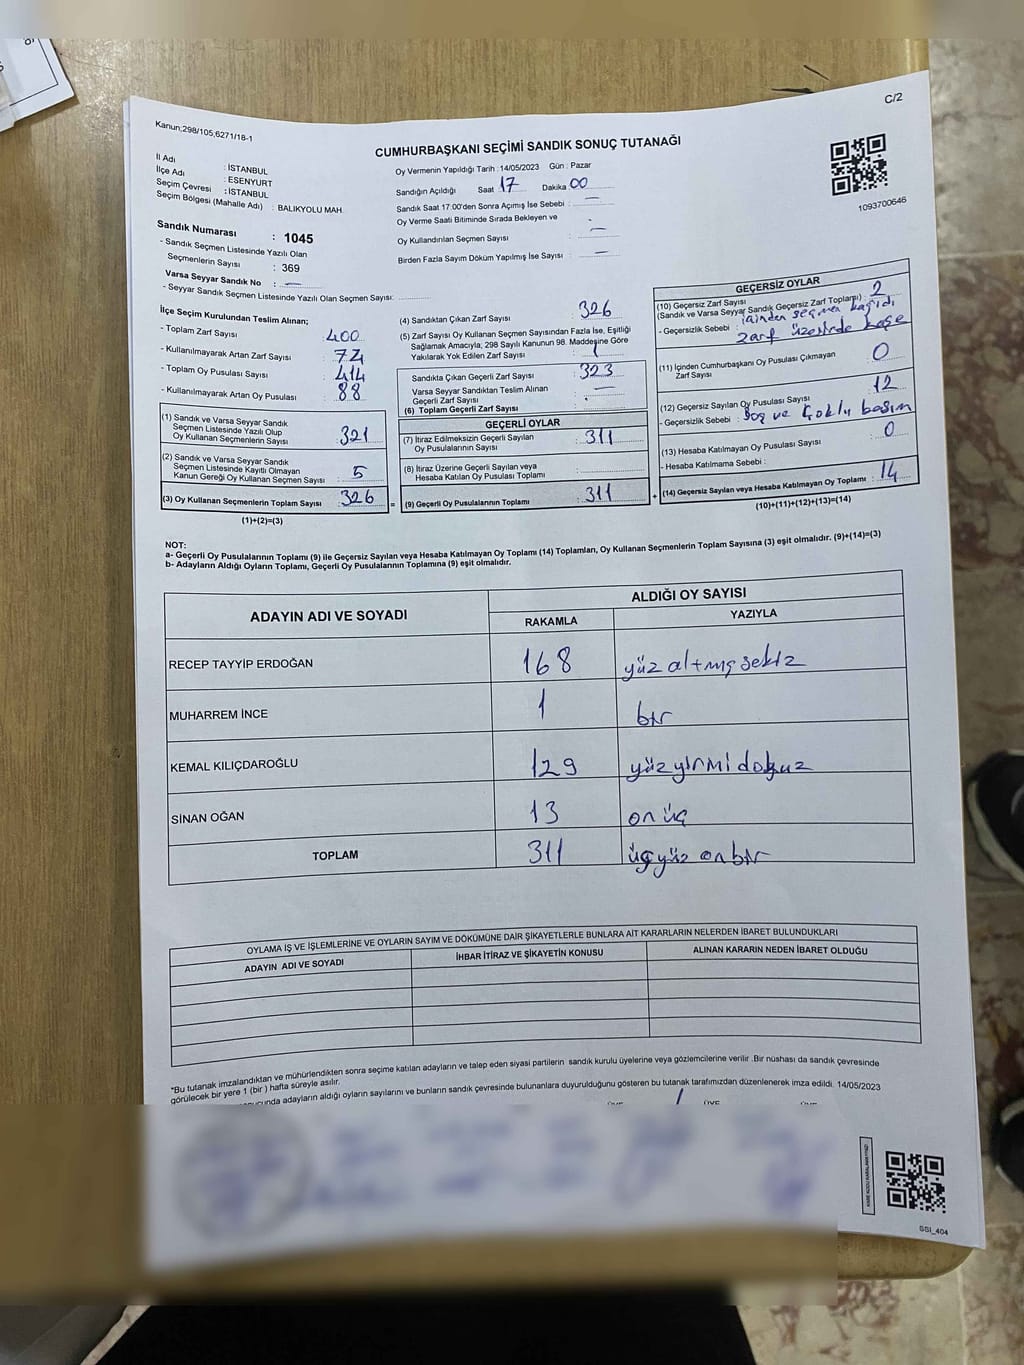 C/2
Kanun;298/105,6271/18-1
CUMHURBAŞKANI SEÇİMİ SANDIK SONUÇ TUTANAĞI
1093700646
İl Adı : İSTANBUL
İlçe Adı : ESENYURT
Seçim Çevresi : İSTANBUL
Seçim Bölgesi (Mahalle Adı) : BALIKYOLU MAH.
Sandık Numarası : 1045
- Sandık Seçmen Listesinde Yazılı Olan
Seçmenlerin Sayısı : 369
Varsa Seyyar Sandık No : —
- Seyyar Sandık Seçmen Listesinde Yazılı Olan Seçmen Sayısı:
Oy Vermenin Yapıldığı Tarih :14/05/2023 Gün : Pazar
Sandığın Açıldığı Saat 17 Dakika 00
Sandık Saat 17:00'den Sonra Açımış İse Sebebi : —
Oy Verme Saati Bitiminde Sırada Bekleyen ve
Oy Kullandırılan Seçmen Sayısı : —
Birden Fazla Sayım Döküm Yapılmış İse Sayısı : —
İlçe Seçim Kurulundan Teslim Alınan;
- Toplam Zarf Sayısı : 400
- Kullanılmayarak Artan Zarf Sayısı : 74
- Toplam Oy Pusulası Sayısı : 414
- Kullanılmayarak Artan Oy Pusulası : 88
(1) Sandık ve Varsa Seyyar Sandık
Seçmen Listesinde Yazılı Olup
Oy Kullanan Seçmenlerin Sayısı : 321
(2) Sandık ve Varsa Seyyar Sandık
Seçmen Listesinde Kayıtlı Olmayan
Kanun Gereği Oy Kullanan Seçmen Sayısı : 5
(3) Oy Kullanan Seçmenlerin Toplam Sayısı : 326 =
(1)+(2)=(3)
(4) Sandıktan Çıkan Zarf Sayısı : 326
(5) Zarf Sayısı Oy Kullanan Seçmen Sayısından Fazla İse, Eşitliği
Sağlamak Amacıyla; 298 Sayılı Kanunun 98. Maddesine Göre
Yakılarak Yok Edilen Zarf Sayısı :
Sandıkta Çıkan Geçerli Zarf Sayısı : 323
Varsa Seyyar Sandıktan Teslim Alınan
Geçerli Zarf Sayısı : —
(6) Toplam Geçerli Zarf Sayısı :
GEÇERLİ OYLAR
(7) İtiraz Edilmeksizin Geçerli Sayılan
Oy Pusulalarının Sayısı : 311
(8) İtiraz Üzerine Geçerli Sayılan veya
Hesaba Katılan Oy Pusulası Toplamı :
(9) Geçerli Oy Pusulalarının Toplamı : 311 +
GEÇERSİZ OYLAR
(10) Geçersiz Zarf Sayısı
(Sandık ve Varsa Seyyar Sandık Geçersiz Zarf Toplamı) : 2
- Geçersizlik Sebebi : içinden seçmen kağıdı
zarf üzerinde kaşe
(11) İçinden Cumhurbaşkanı Oy Pusulası Çıkmayan
Zarf Sayısı : 0
(12) Geçersiz Sayılan Oy Pusulası Sayısı : 12
- Geçersizlik Sebebi : Boş ve Çoklu basım
(13) Hesaba Katılmayan Oy Pusulası Sayısı : 0
- Hesaba Katılmama Sebebi :
(14) Geçersiz Sayılan veya Hesaba Katılmayan Oy Toplamı : 14
(10)+(11)+(12)+(13)=(14)
NOT:
a- Geçerli Oy Pusulalarının Toplamı (9) ile Geçersiz Sayılan veya Hesaba Katılmayan Oy Toplamı (14) Toplamları, Oy Kullanan Seçmenlerin Toplam Sayısına (3) eşit olmalıdır. (9)+(14)=(3)
b- Adayların Aldığı Oyların Toplamı, Geçerli Oy Pusulalarının Toplamına (9) eşit olmalıdır.
ADAYIN ADI VE SOYADI ALDIĞI OY SAYISI
RAKAMLA YAZIYLA
RECEP TAYYİP ERDOĞAN 168 yüz altmış sekiz
MUHARREM İNCE 1 bir
KEMAL KILIÇDAROĞLU 129 yüzyirmi dokuz
SİNAN OĞAN 13 on üç
TOPLAM 311 üçyüz onbir
OYLAMA İŞ VE İŞLEMLERİNE VE OYLARIN SAYIM VE DÖKÜMÜNE DAİR ŞİKAYETLERLE BUNLARA AİT KARARLARIN NELERDEN İBARET BULUNDUKLARI
ADAYIN ADI VE SOYADI İHBAR İTİRAZ VE ŞİKAYETİN KONUSU ALINAN KARARIN NEDEN İBARET OLDUĞU
*Bu tutanak imzalandıktan ve mühürlendikten sonra seçime katılan adayların ve talep eden siyasi partilerin sandık kurulu üyelerine veya gözlemcilerine verilir .Bir nüshası da sandık çevresinde
görülecek bir yere 1 (bir ) hafta süreyle asılır.
adayların aldığı oyların sayılarını ve bunların sandık çevresinde bulunanlara duyurulduğunu gösteren bu tutanak tarafımızdan düzenlenerek imza edildi. 14/05/2023
SSI_404